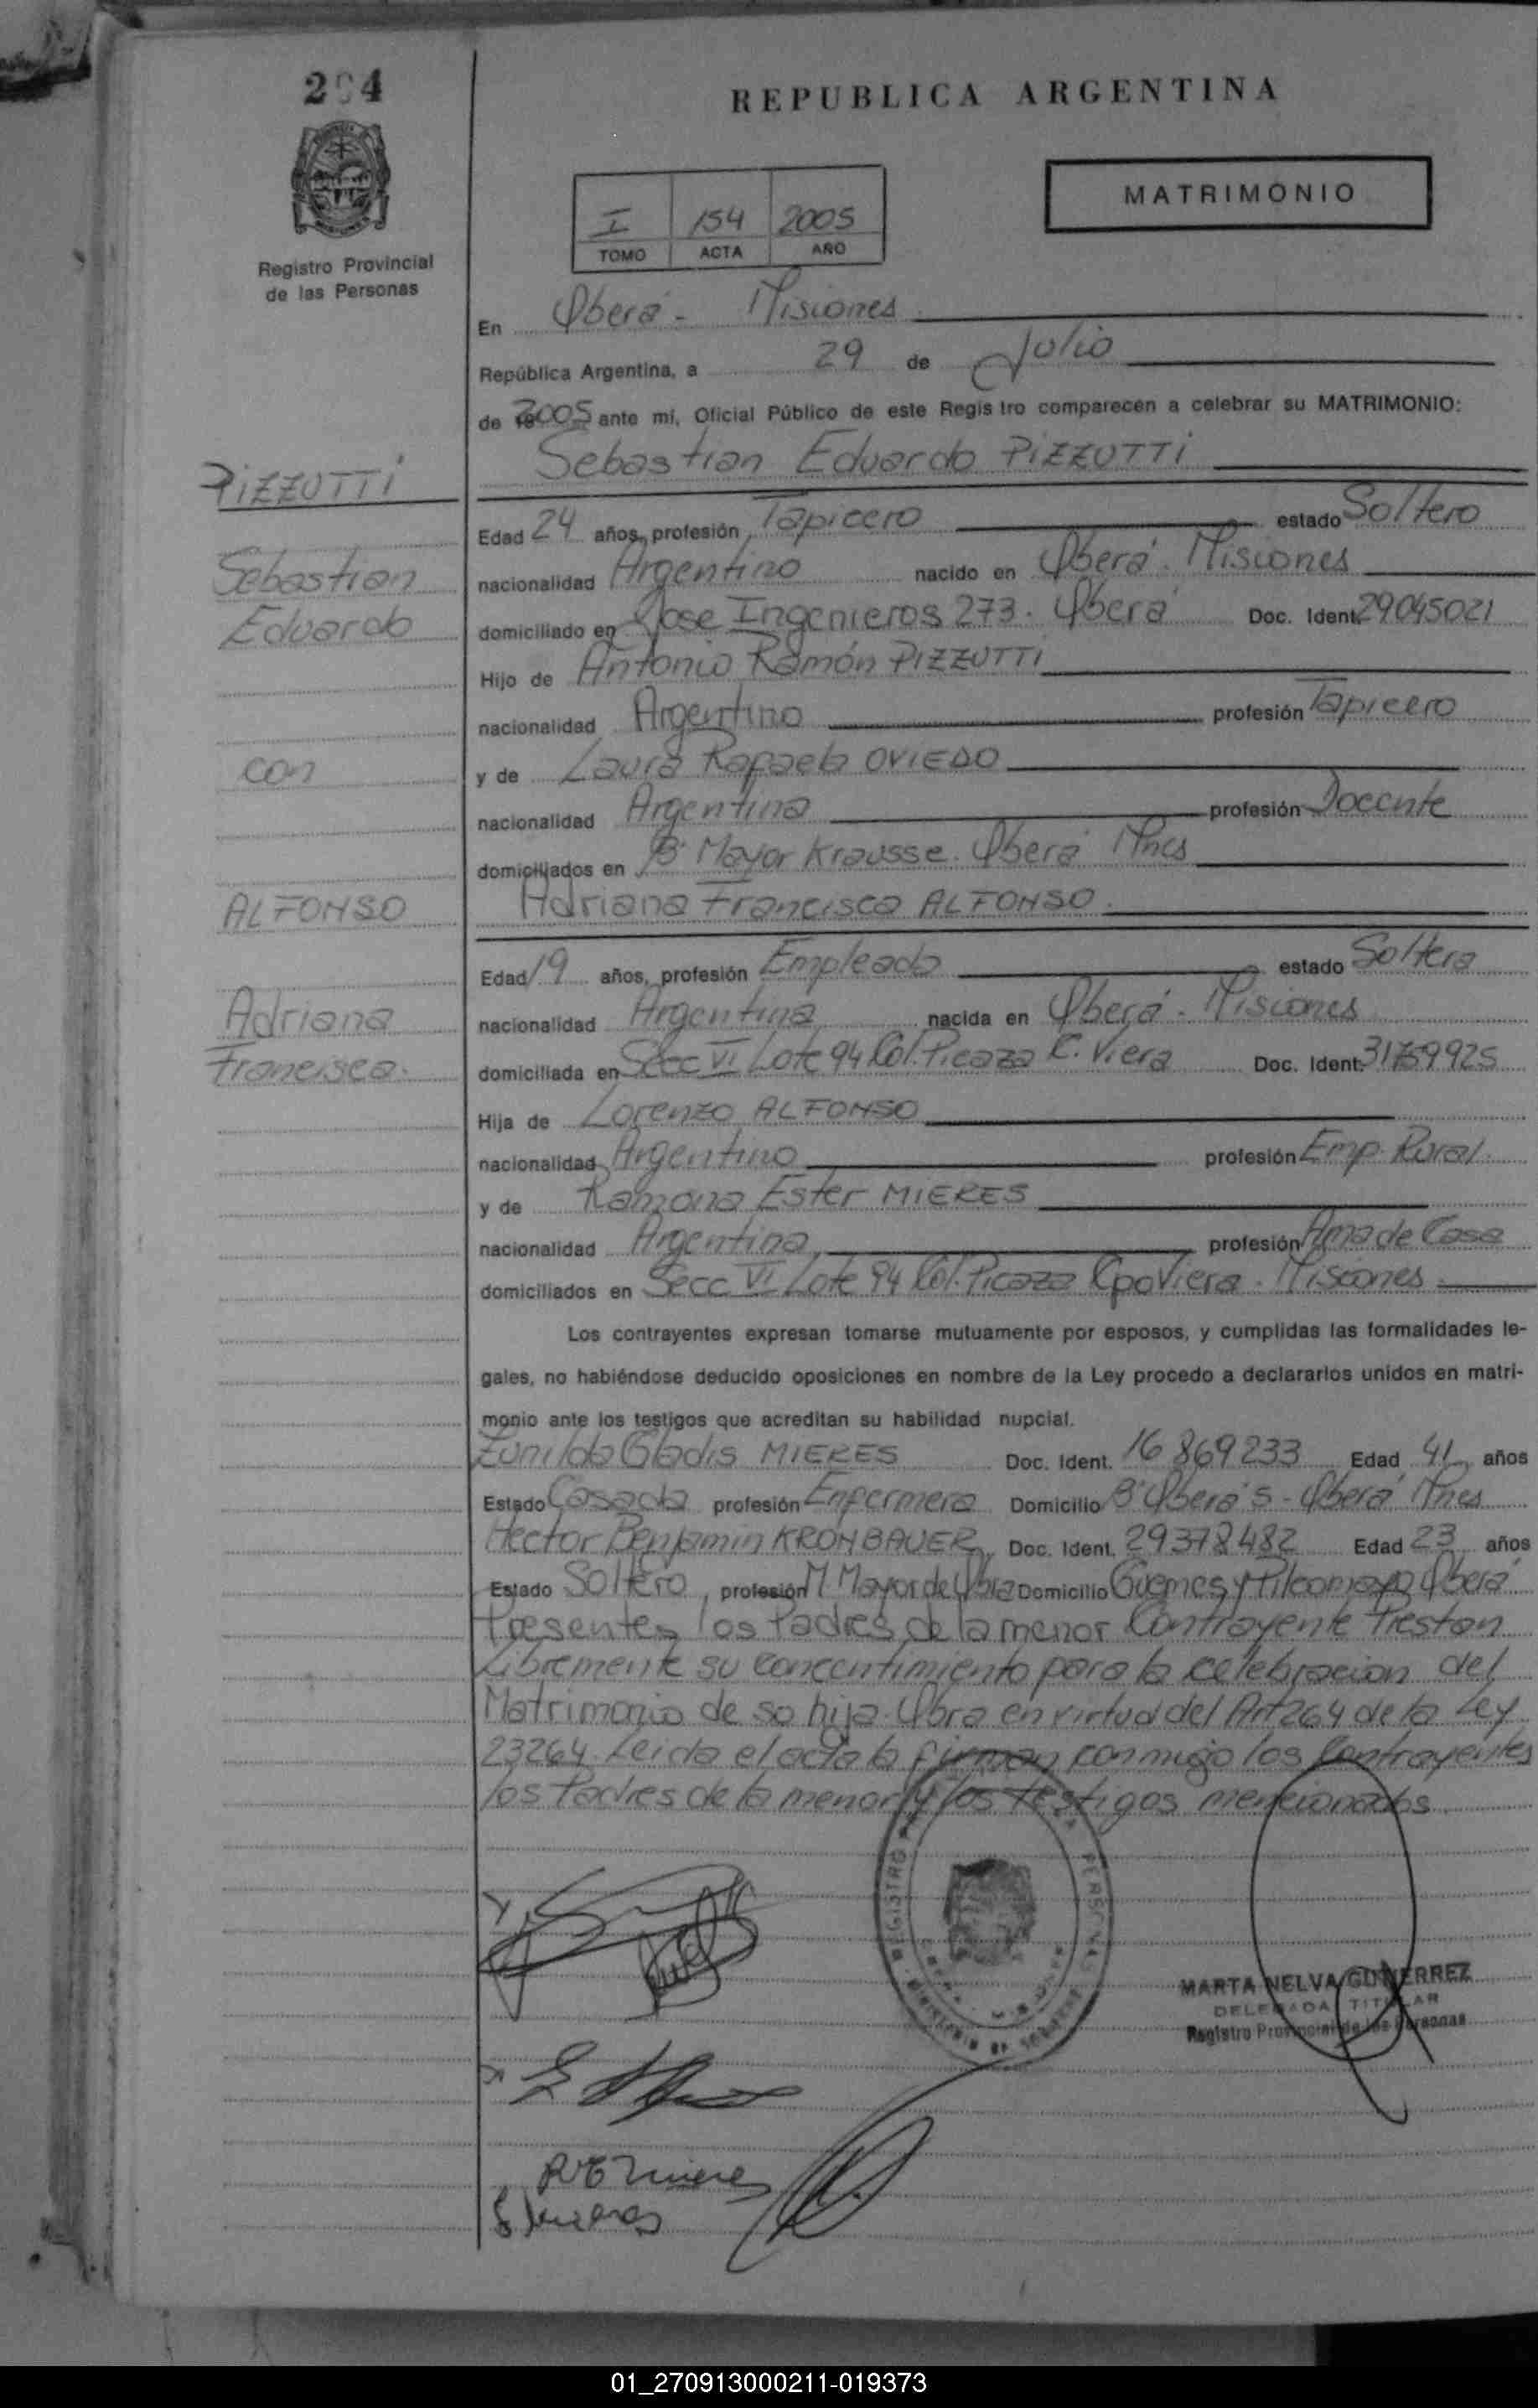 204
REPUBLICA ARGENTINA
MATRIMONIO
I 154 2005
TOMO ACTA AÑO
Registro Provincial
de las Personas
En Oberá - Misiones
República Argentina, a 29 de Julio
de 2005 ante mí, Oficial Público de este Regis tro comparecen a celebrar su MATRIMONIO:
Sebastian Eduardo PIZZUTTI
PIZZUTTI
Edad 24 años, profesión Tapicero estado Soltero
Sebastian
nacionalidad Argentino nacido en Oberá - Misiones
Eduardo
domiciliado en Jose Ingenieros 273 - Oberá Doc. Ident. 29045021
Hijo de Antonio Ramón PIZZUTTI
nacionalidad Argentino profesión Tapicero
con
y de Laura Rafaela OVIEDO
nacionalidad Argentina profesión Docente
domiciliados en B° Mayor Krausse. Oberá Mnes
ALFONSO
Adriana Francisca ALFONSO
Edad 19 años, profesión Empleada estado Soltera
Adriana
nacionalidad Argentina nacida en Oberá - Misiones
Francisca.
domiciliada en Secc VI Lote 94 Col. Picaza C. Viera Doc. Ident. 31759925
Hija de Lorenzo ALFONSO
nacionalidad Argentino profesión Emp. Rural
y de Ramona Ester MIERES
nacionalidad Argentina profesión Ama de Casa
domiciliados en Secc VI Lote 94 Col. Picaza Cpo Viera - Misiones
Los contrayentes expresan tomarse mutuamente por esposos, y cumplidas las formalidades le-
gales, no habiéndose deducido oposiciones en nombre de la Ley procedo a declararlos unidos en matri-
monio ante los testigos que acreditan su habilidad nupcial.
Zunilda Gladis MIERES Doc. Ident. 16869233 Edad 41 años
Estado Casada profesión Enfermera Domicilio B° Oberá 5 - Oberá Mnes
Hector Benjamin KRONBAUER, Doc. Ident. 29378482 Edad 23 años
Estado Soltero, profesión M. Mayor de Obra Domicilio Guemes y Pilcomayo Oberá
Presentes los Padres de la menor Contrayente Prestan
Libremente su concentimiento para la celebracion del
Matrimonio de su hija. Obra en virtud del Art 264 de la Ley
23264. Leida el acta la firman conmigo los Contrayentes
los Padres de la menor y los testigos mencionados
MARTA NELVA GUTIERREZ
DELEGADA TITULAR
Registro Provincial de las Personas
REGISTRO PERSONAS
MINISTERIO DE GOBIERNO
R E Mieres
01_270913000211-019373